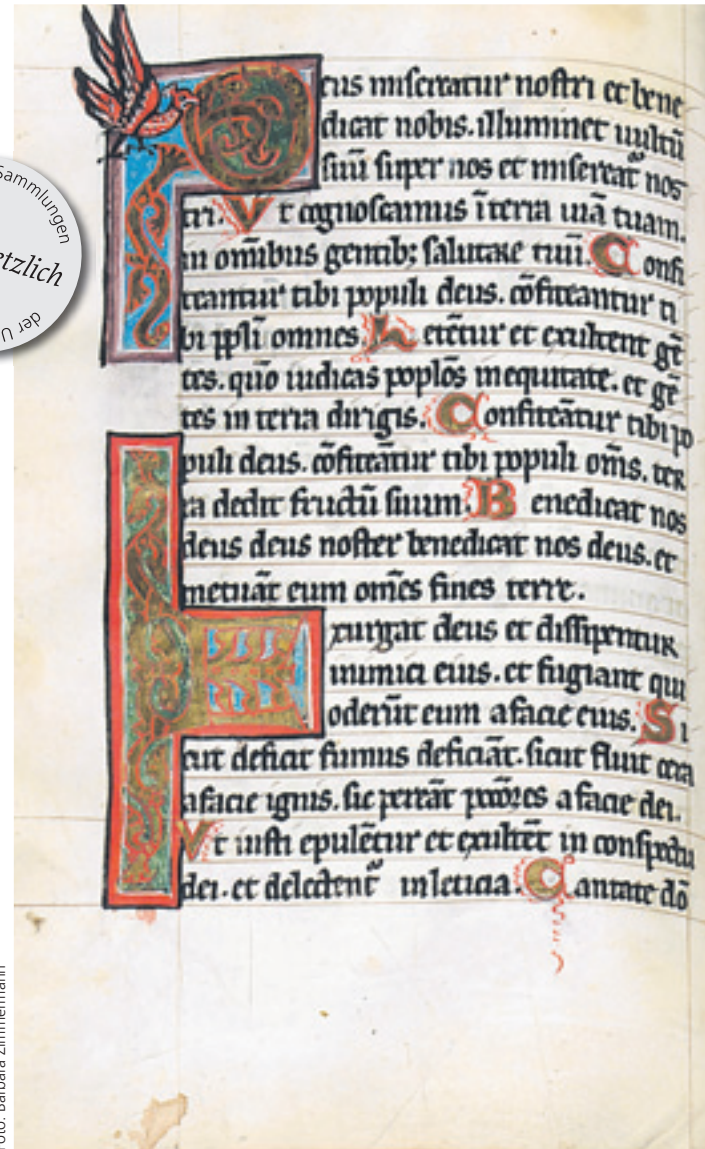 Deus misereatur nostri et bene
dicat nobis. illuminet uultū
suū super nos et misereat᷑ nos
tri. Vt cognoscamus ī terra uiā tuam.
in omībus gentib; salutare tuū. Confi
teantur tibi populi deus. cōfiteantur ti
bi ppłi omnes. Letētur et exultent gē
tes. quō iudicas poplōs inequitate. et gē
tes in terra dirigis. Confiteātur tibi po
puli deus. cōfiteātur tibi populi om̄s. ter
ra dedit fructū suum. Benedicat nos
deus deus noster benedicat nos deus. et
metuāt eum om̄es fines terre.
Exurgat deus et dissipentur
inimici eius. et fugiant qui
oderūt eum afacie eius. Si
cut deficit fumus deficiāt. sicut fluit cera
afacie ignis. sic pereāt pctōres afacie dei.
Vt iusti epulētur et exultēt in conspectu
dei. et delectent᷑ inleticia. Cantate dō
Sammlungen
etzlich
der U
Foto: Barbara Zimmermann